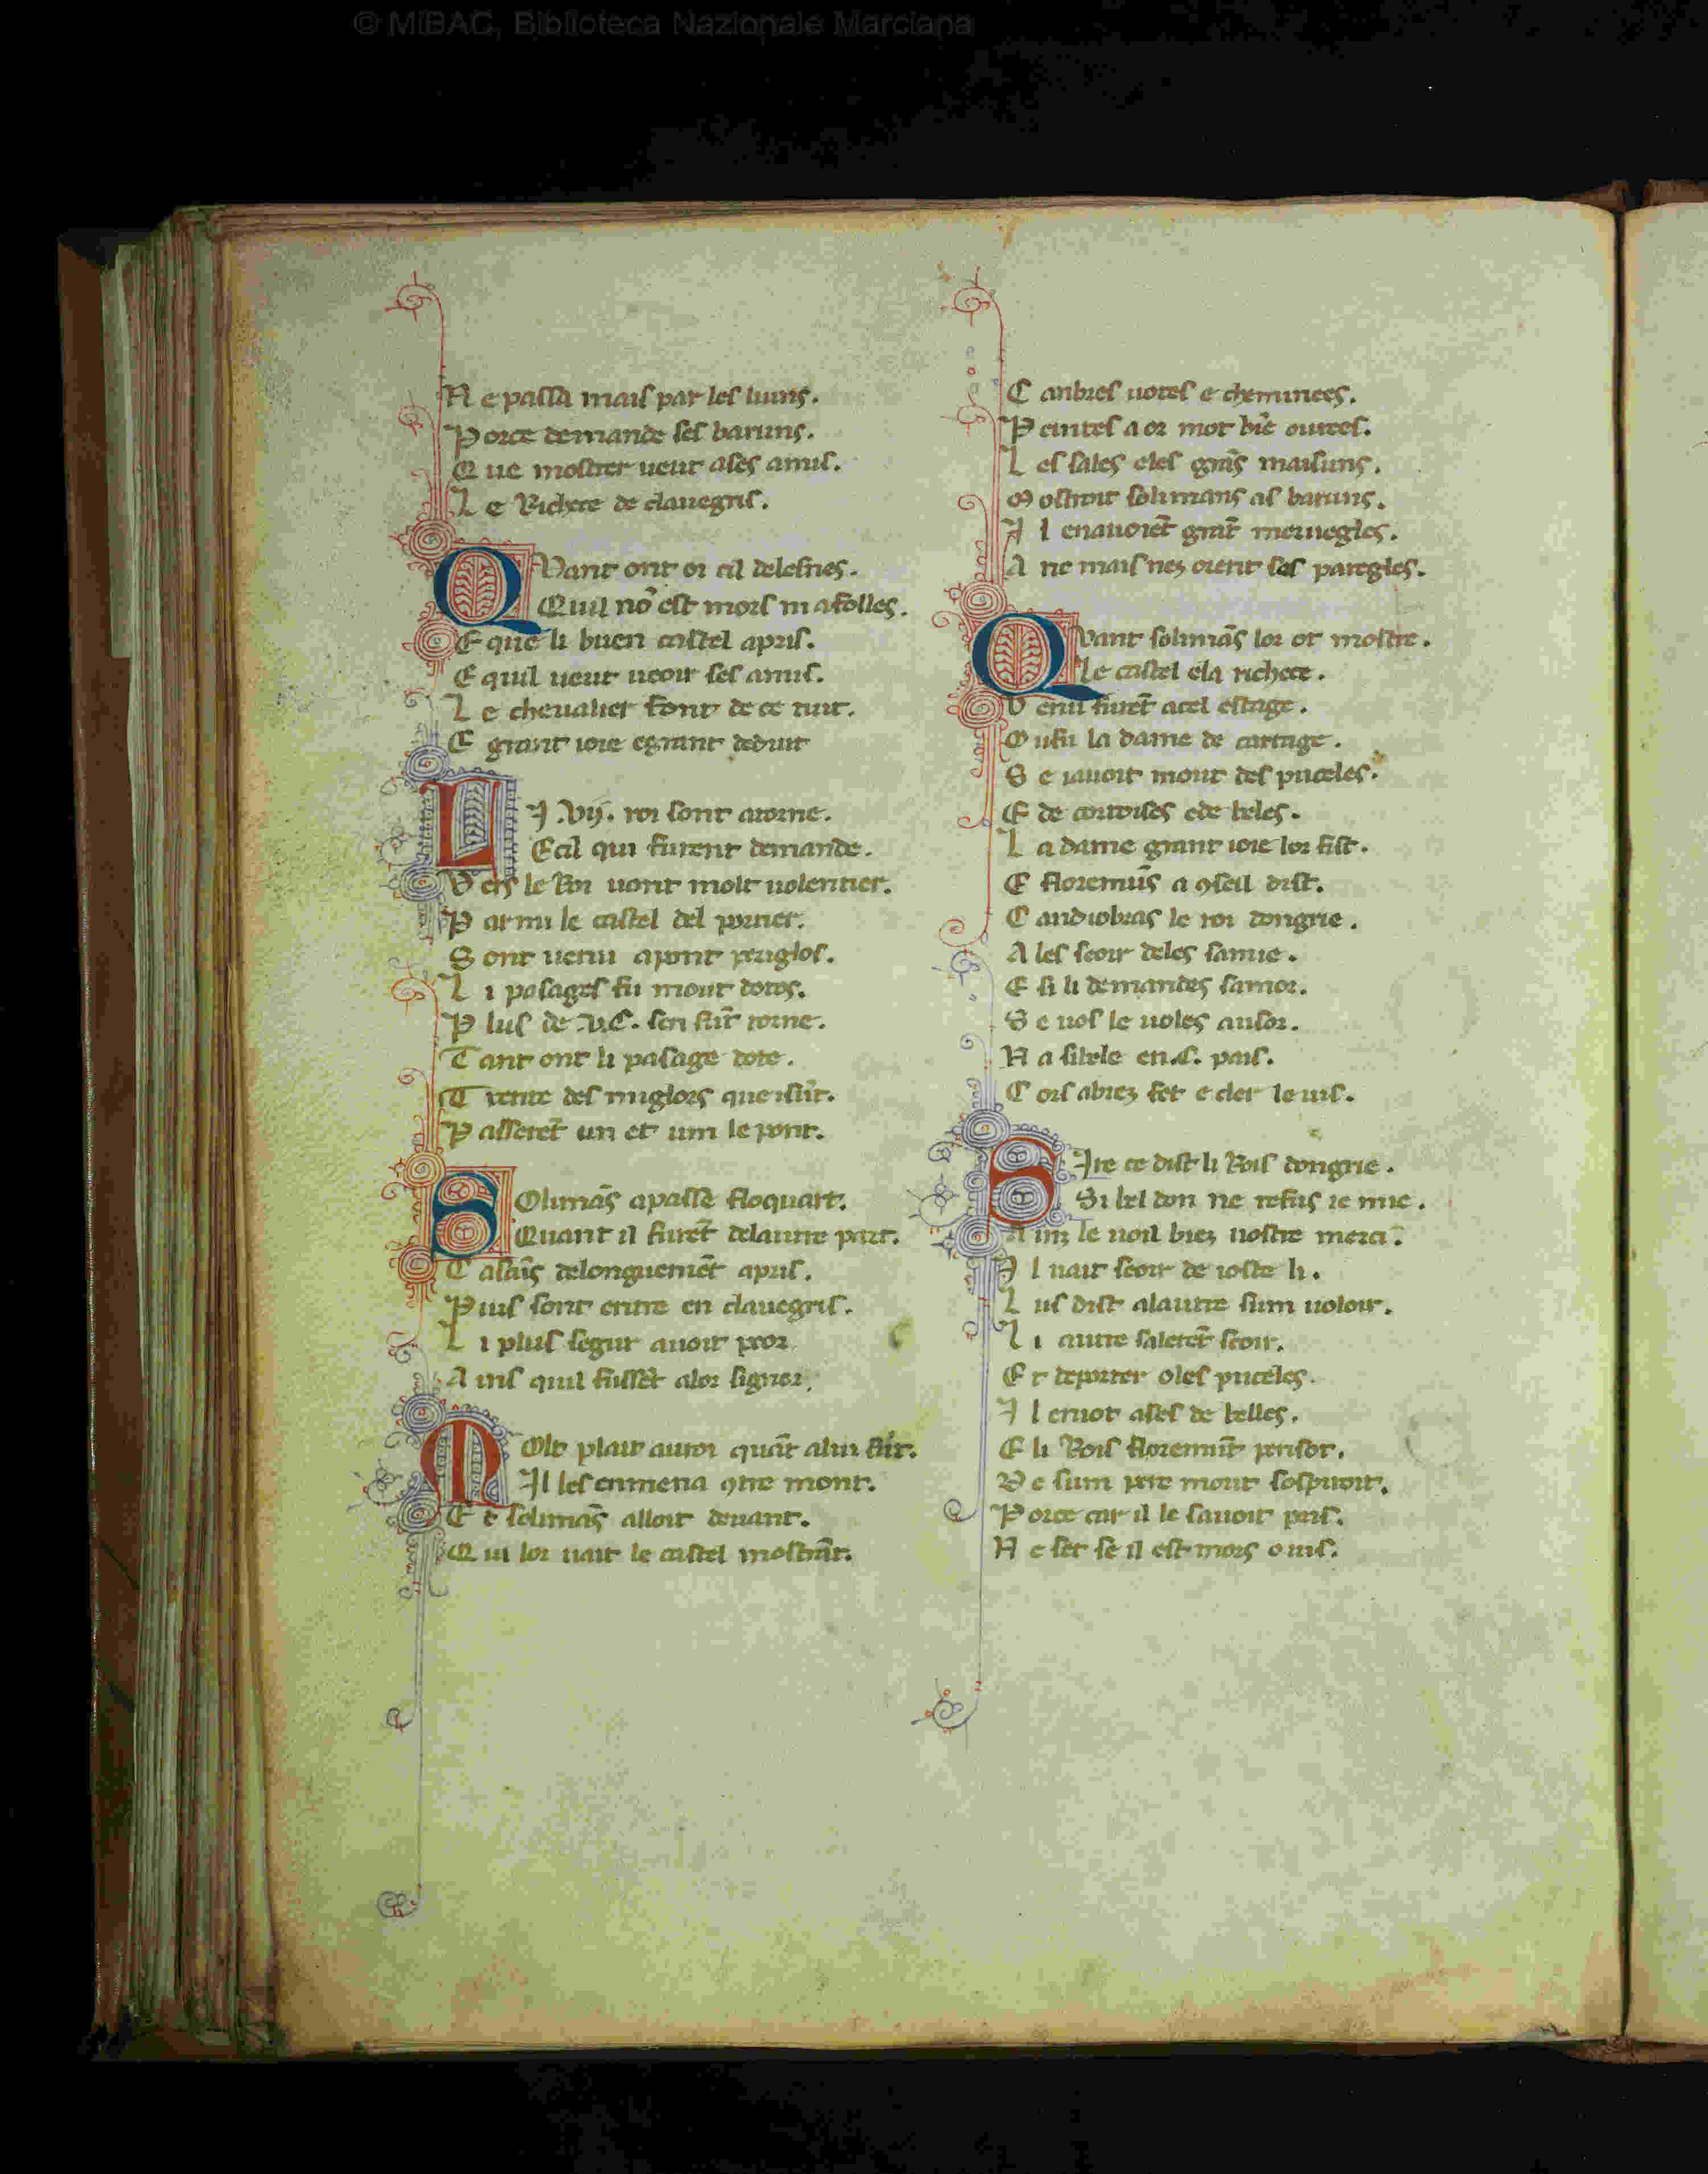 © MiBAC, Biblioteca Nazionale Marciana
N e passa mais par les luins.
P orce demande ses baruns.
Q ue mostrer ueut ases amis.
L e Richece de clauegris.
QVant ont oi cil delesnies.
Quil nō est mors ni afolles.
E que li buen castel apris.
E quil ueut ueoir ses amis.
L e cheualier font de ce tuit.
E grant ioie egrant deduit
LI .vij. roi sont atorne.
E cil qui furent demande.
V ers le Roi uont molt uolentier.
P armi le castel del portier.
S ont uenu a pont periglos.
L i pasages fu mout dotos.
P lus de .v.C. sen sūt torne.
T ant ont li pasage dote.
T rente des miglors que isūt.
P asseret̄ un et um le pont.
SOlimās apasse floquart.
Quant il furēt delautre part.
T alaīs delonguemēt apris.
P uis sont entre en clauegris.
L i plus segur auoit peor
A ins quil fussēt alor signor.
MOlt plait autoi quāt alui sūt.
Il les enmena ꝯtre mont.
E t solimās alloit deuant.
Q ui lor uait le castel mostrāt.
C anbres uotes e cheminees.
P eintes a or mot biē ourees.
L es sales eles grās maisuns.
M ostroit solimans as baruns.
I l enauoiēt grāt meruegles.
A nc mais nez oient ses paregles.
QVant solimās lor ot mostre.
Le castel ela richece.
V enu furēt acel estage.
O u fu la dame de cartage.
S e iauoit mout des puceles.
E de cortoises ede beles.
L a dame grant ioie lor fist.
E floremūs a ꝯseil dist.
C andiobras le roi dongrie.
A les seoir deles samie.
E si li demandes samor.
S e uos le uoles ausor.
N a si bele en .C. pais.
C ors abiez fet e cler le uis.
SIre ce dist li Rois dongrie.
Si bel don ne refus ie mie.
A inz le uoil biez uostre merci.
I l uait seoir de ioste li.
L us dist alautre sum uoloir.
L i autre saleret̄ seoir.
E t deporter o les puceles.
I l eniot ases de belles.
E li Rois floremūt pensor.
D e sum pere mout sospiroit.
P orce car il le sauoit pris.
N e set se il est mors o uis.